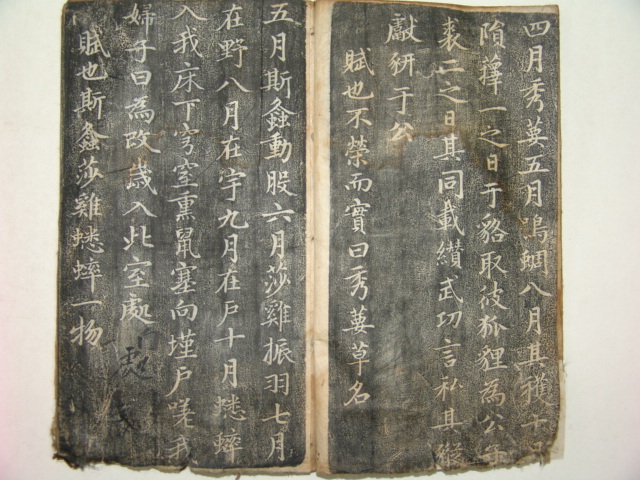 四月秀葽五月鳴蜩八月其穫十月
隕蘀一之日于貉取彼狐狸為公子
裘二之日其同載纘武功言私其豵
獻豜于公
賦也不榮而實曰秀葽草名
五月斯螽動股六月莎雞振羽七月
在野八月在宇九月在戶十月蟋蟀
入我床下穹窒熏鼠塞向墐戶嗟我
婦子曰為改歲入此室處
賦也斯螽莎雞蟋蟀一物